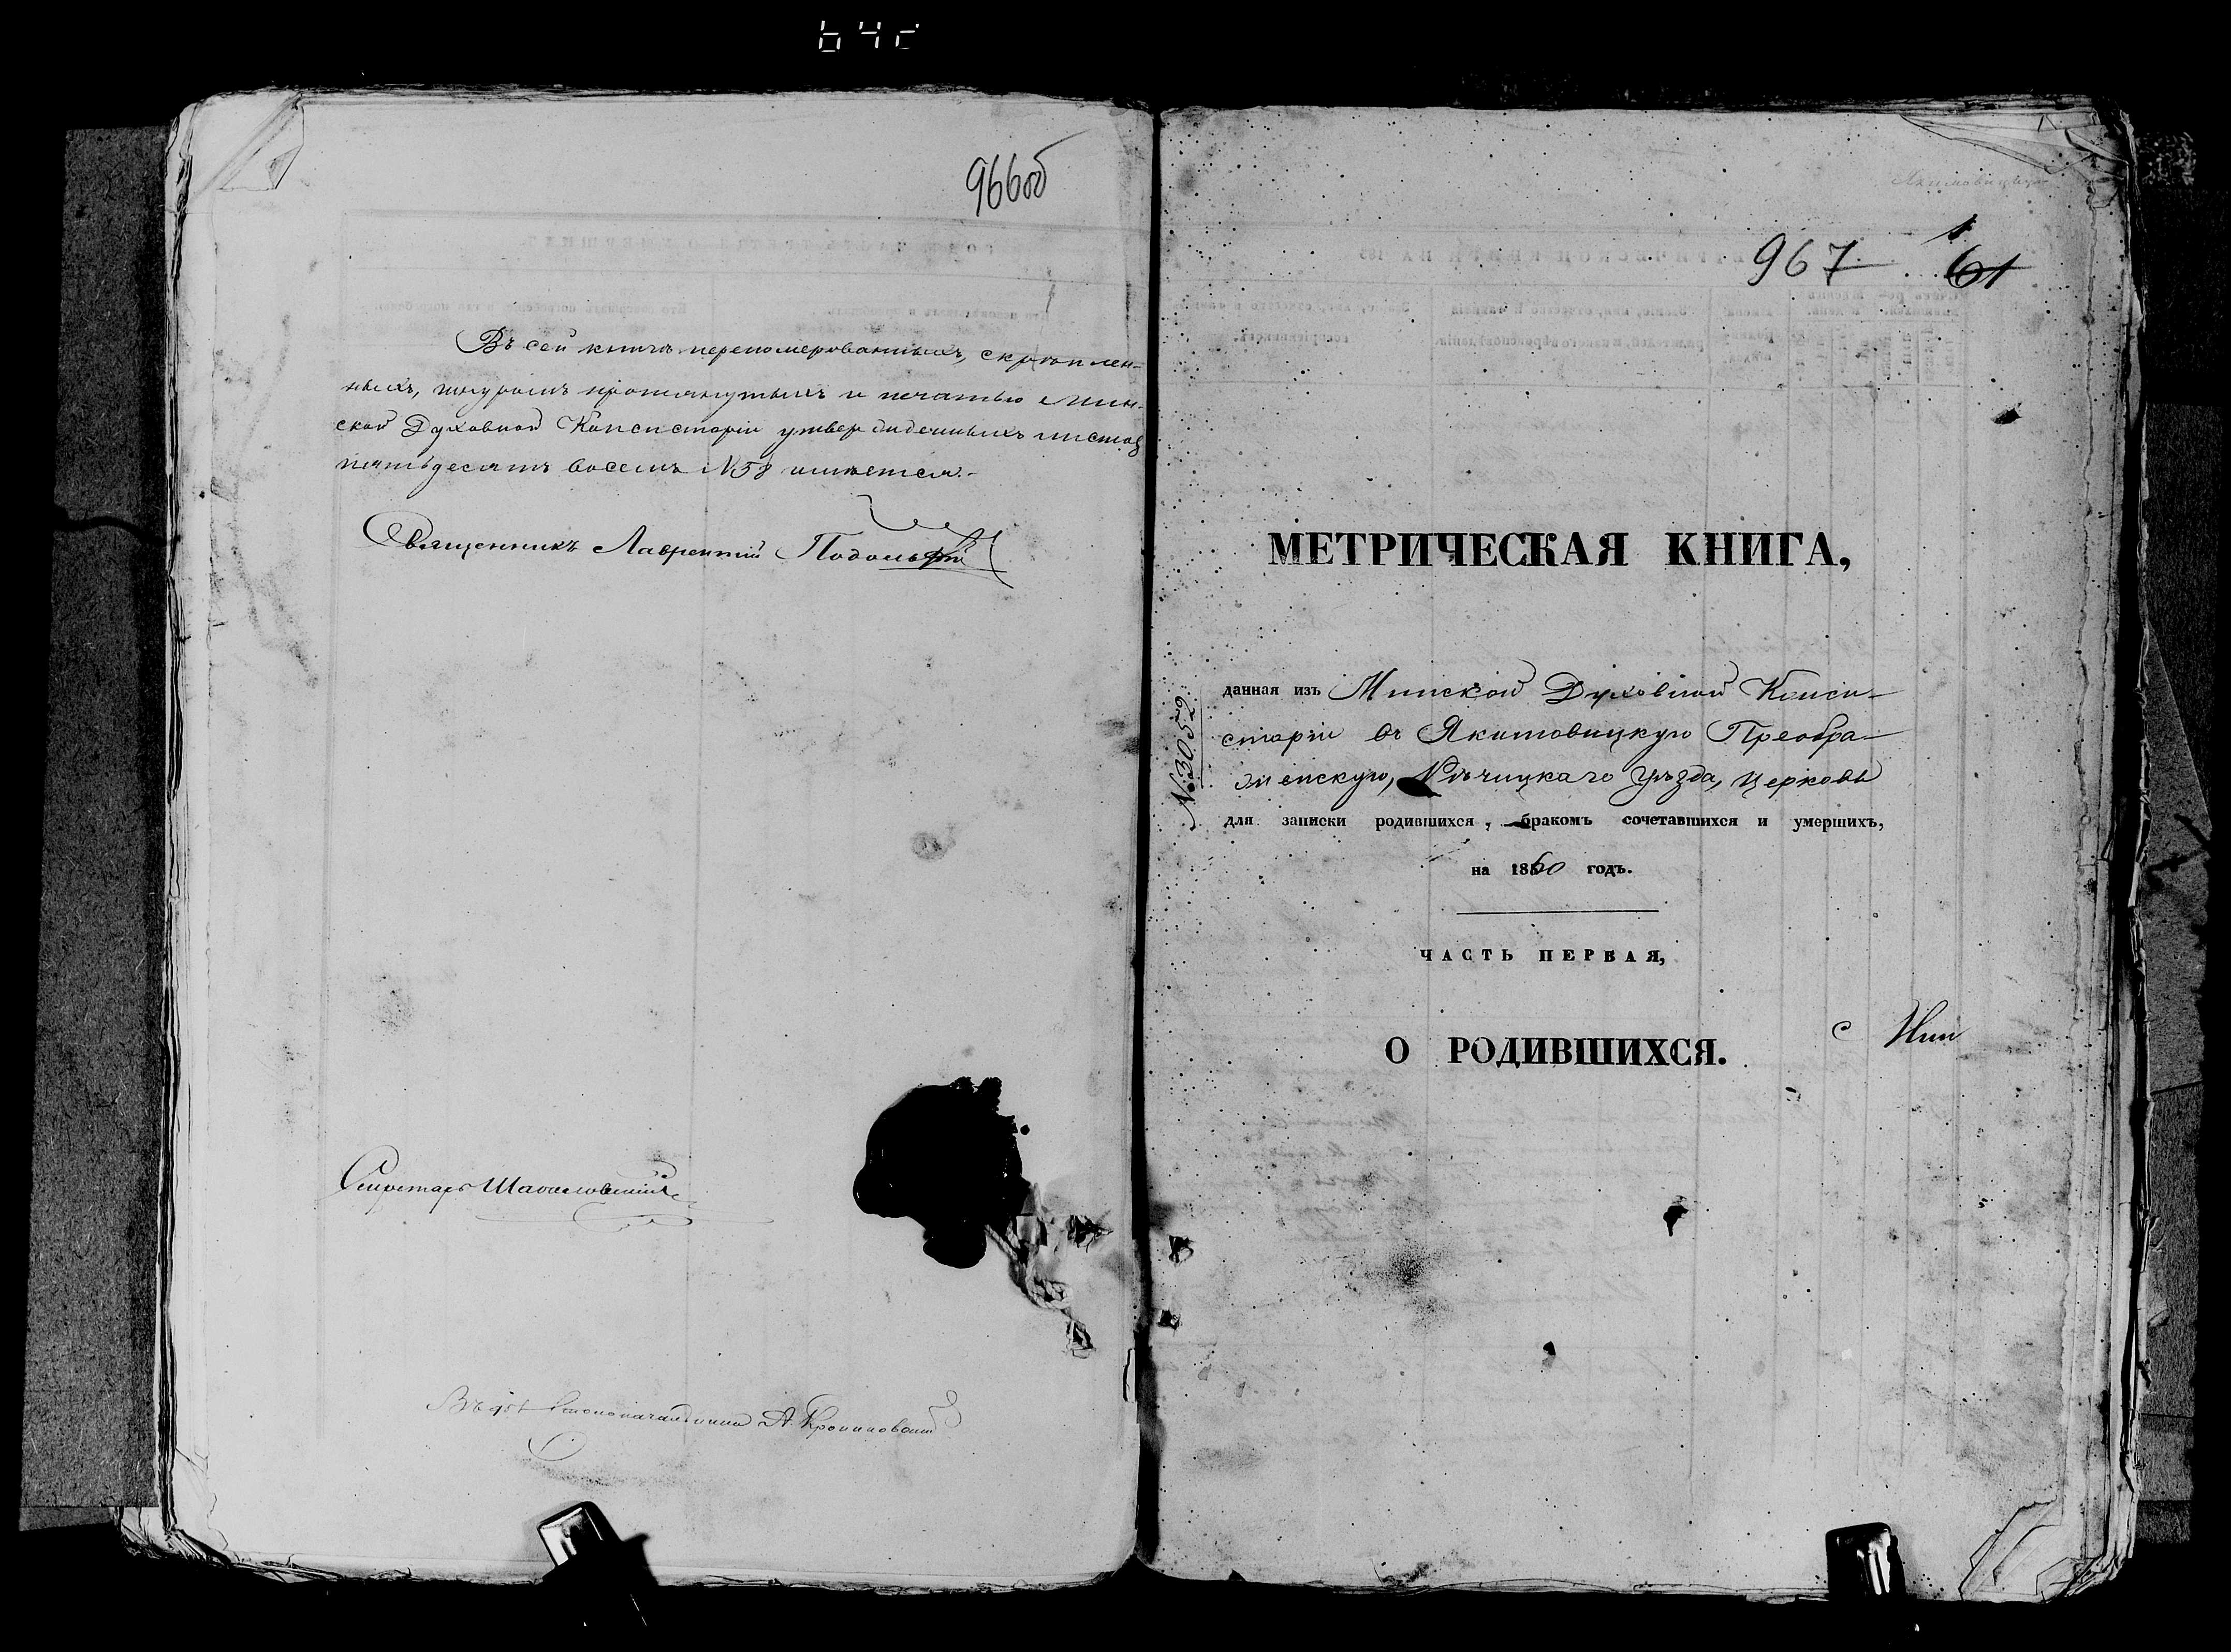 966об
Въ сей книгѣ перенумерованныхъ, скрѣплен-
ныхъ, шнуромъ протянутыхъ и печатью Мин-
ской Духовной Консисторіи утвержденныхъ листовъ
пятьдесятъ восемь №58 имѣется.-
Священникъ Лаврентій Подольскій
Секретарь
Столоначальника А.
967 61
МЕТРИЧЕСКАЯ КНИГА,
№ 3052
данная изъ Минской Духовной Конси-
сторіи въ Якимовицкую Преобра-
женскую, Рѣчицкаго уѣзда, церковь
для записки родившихся, бракомъ сочетавшихся и умершихъ,
на 1860 годъ.
ЧАСТЬ ПЕРВАЯ,
О РОДИВШИХСЯ.
с